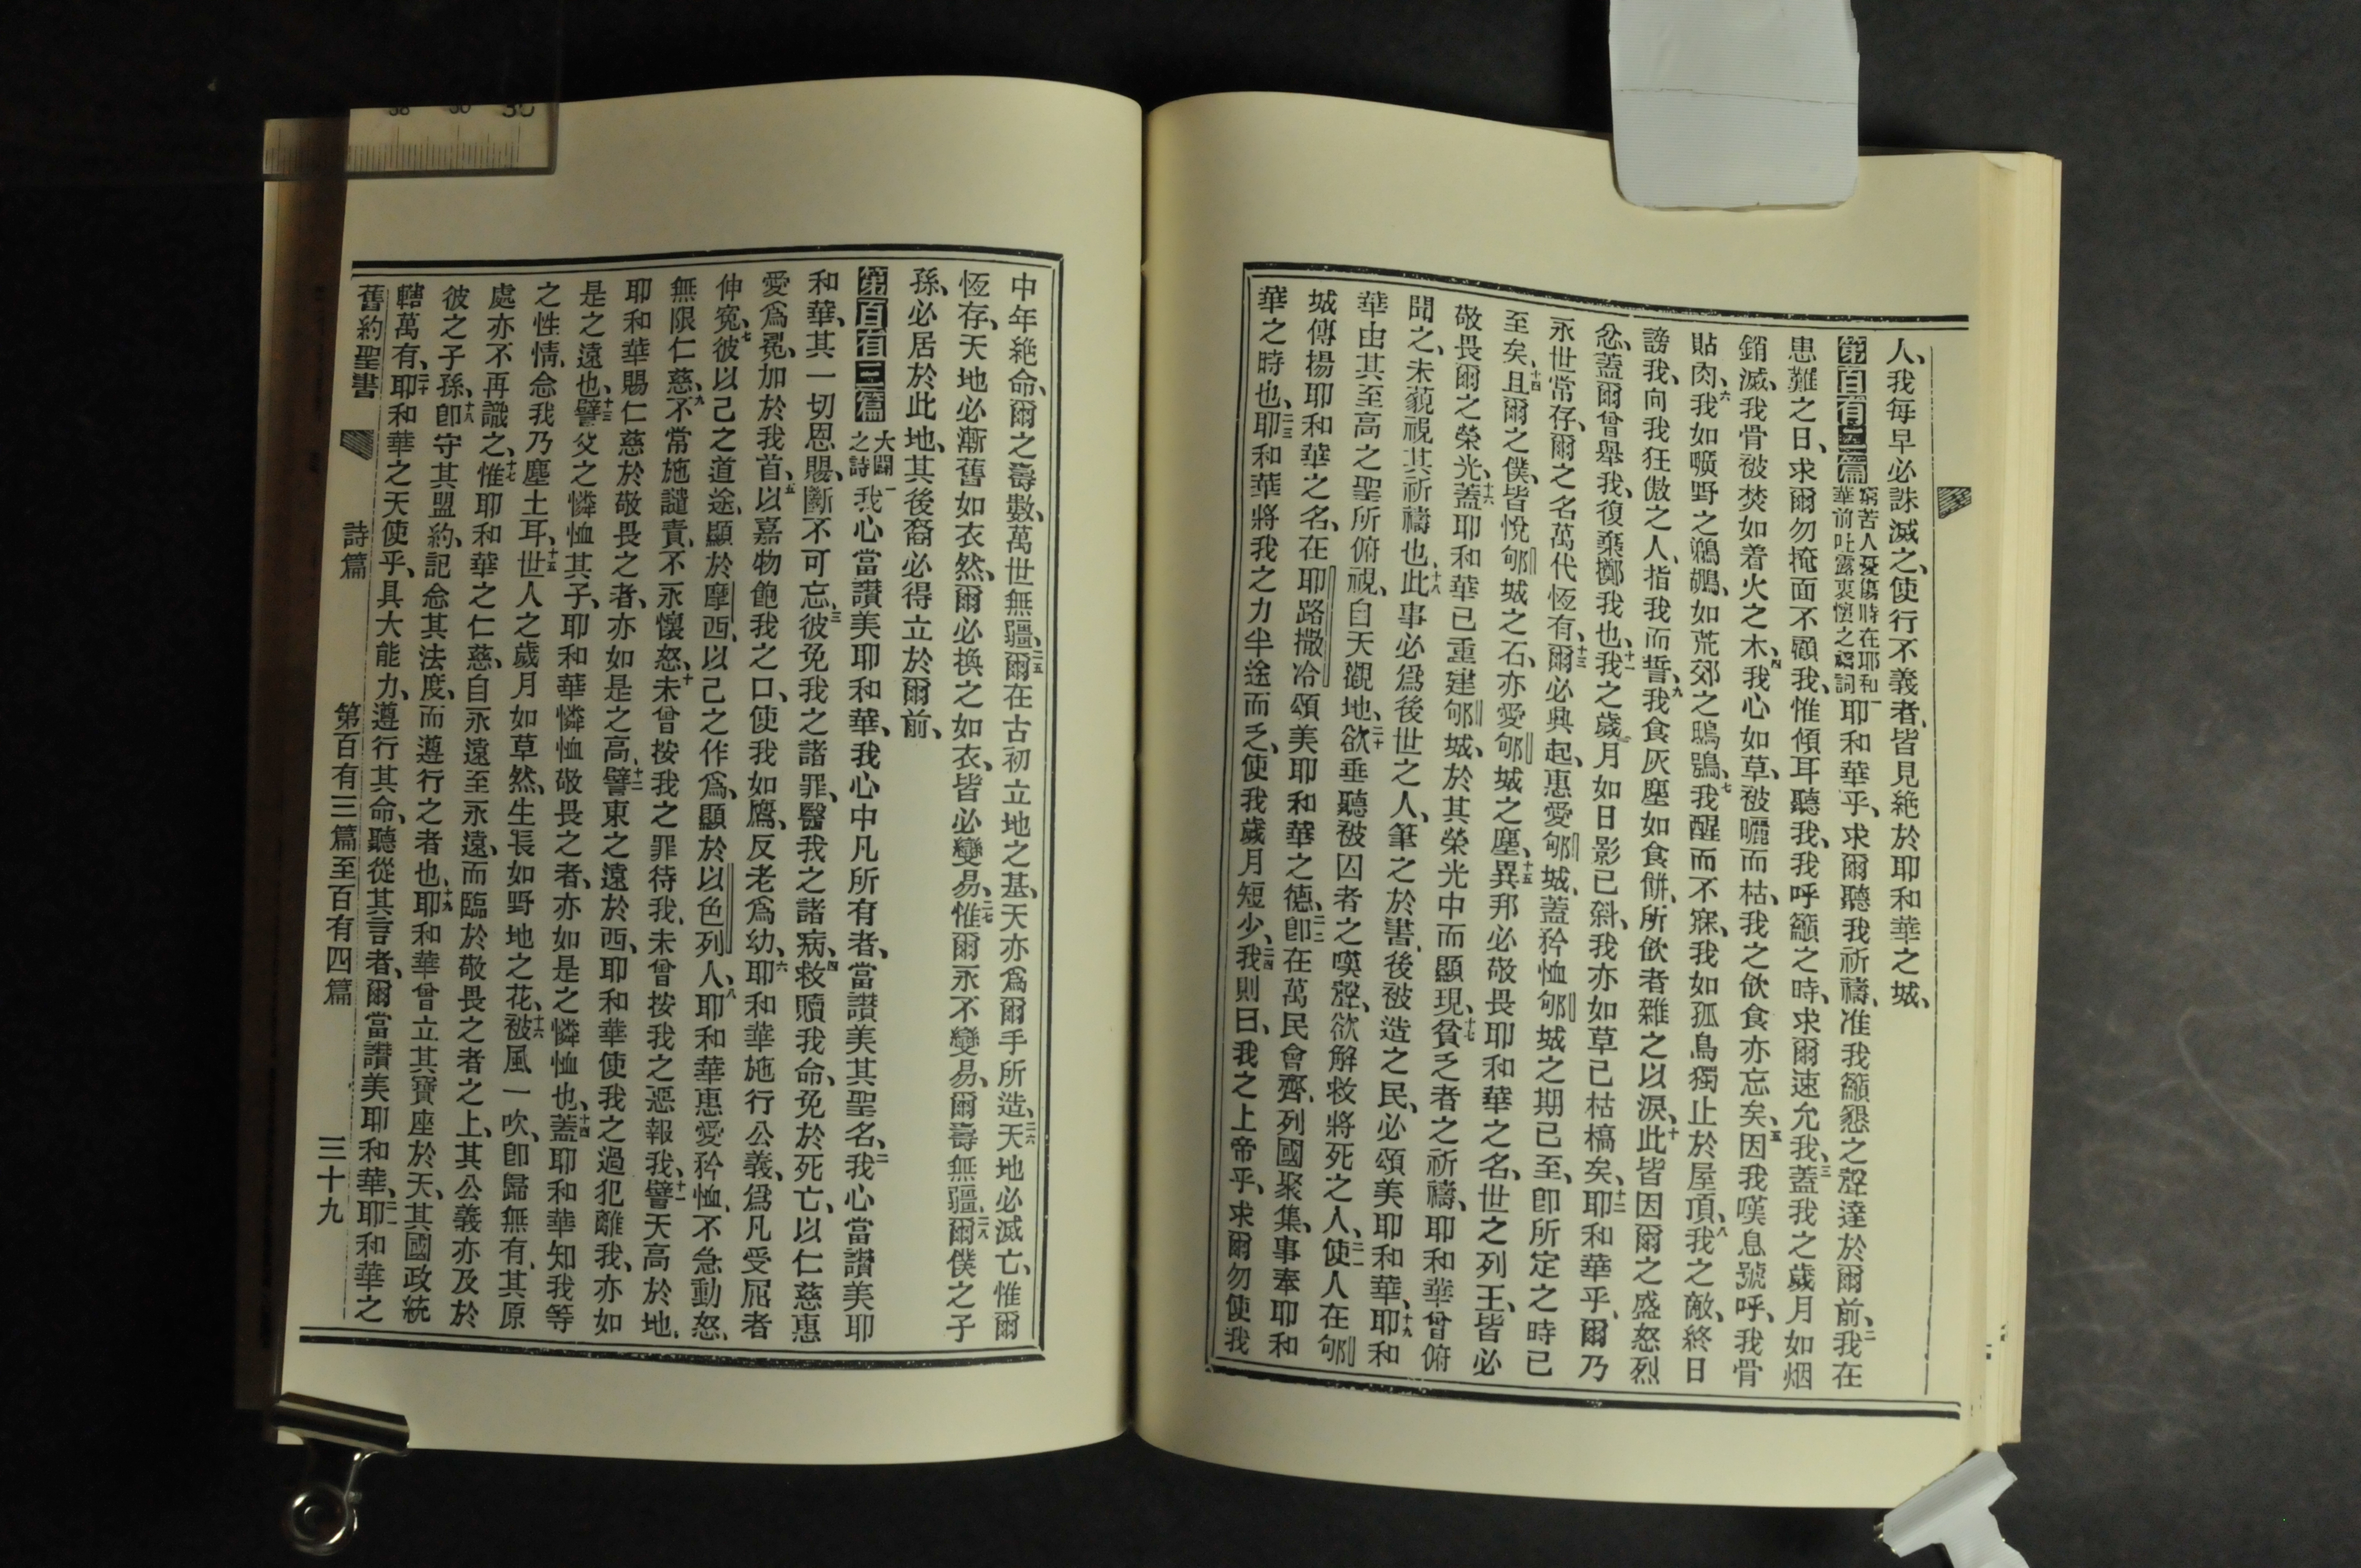 人、我每早必誅滅之、使行不義者、皆見絕於耶和華之城、
第百有二篇 窮苦人憂傷時在耶和華前吐露衷懷之禱詞 一耶和華乎、求爾聽我祈禱、准我籲懇之聲達於爾前、二我在
患難之日、求爾勿掩面不顧我、惟傾耳聽我、我呼籲之時、求爾速允我、三蓋我之歲月如烟
銷滅、我骨被焚如着火之木、四我心如草、被曬而枯、我之飲食亦忘矣、五因我嘆息號呼、我骨
貼肉、六我如曠野之鵜鶘、如荒郊之鴟鴞、七我醒而不寐、我如孤鳥獨止於屋頂、八我之敵、終日
謗我、向我狂傲之人、指我而誓、九我食灰塵如食餅、所飲者雜之以淚、十此皆因爾之盛怒烈
忿、蓋爾曾舉我、復棄擲我也、十一我之歲月如日影已斜、我亦如草已枯槁矣、十二耶和華乎、爾乃
永世常存、爾之名萬代恆有、十三爾必興起、惠愛郇城、蓋矜恤郇城之期已至、卽所定之時已
至矣、十四且爾之僕、皆悅郇城之石、亦愛郇城之塵、十五異邦必敬畏耶和華之名、世之列王、皆必
敬畏爾之榮光、十六蓋耶和華已重建郇城、於其榮光中而顯現、十七貧乏者之祈禱、耶和華曾俯
聞之、未藐視其祈禱也、十八此事必爲後世之人、筆之於書、後被造之民、必頌美耶和華、十九耶和
華由其至高之聖所俯視、自天觀地、二十欲垂聽被囚者之嘆聲、欲解救將死之人、二一使人在郇
城傳揚耶和華之名、在耶路撒冷頌美耶和華之德、二二卽在萬民會齊、列國聚集、事奉耶和
華之時也、二三耶和華將我之力半途而乏、使我歲月短少、二四我則曰、我之上帝乎、求爾勿使我
中年絕命、爾之壽數、萬世無疆、二五爾在古初立地之基、天亦爲爾手所造、二六天地必滅亡、惟爾
恆存、天地必漸舊如衣然、爾必換之如衣、皆必變易、二七惟爾永不變易、爾壽無疆、二八爾僕之子
孫、必居於此地、其後裔必得立於爾前、
第百有三篇 大闢之詩 一我心當讚美耶和華、我心中凡所有者、當讚美其聖名、二我心當讚美耶
和華、其一切恩賜、斷不可忘、三彼免我之諸罪、醫我之諸病、四救贖我命、免於死亡、以仁慈惠
愛爲冕、加於我首、五以嘉物飽我之口、使我如鷹、反老爲幼、六耶和華施行公義、爲凡受屈者
伸冤、七彼以己之道途、顯於摩西、以己之作爲、顯於以色列人、八耶和華惠愛矜恤、不急動怒、
無限仁慈、九不常施譴責、不永懷怒、十未曾按我之罪待我、未曾按我之惡報我、十一譬天高於地、
耶和華賜仁慈於敬畏之者、亦如是之高、十二譬東之遠於西、耶和華使我之過犯離我、亦如
是之遠也、十三譬父之憐恤其子、耶和華憐恤敬畏之者、亦如是之憐恤也、十四蓋耶和華知我等
之性情、念我乃塵土耳、十五世人之歲月如草然、生長如野地之花、十六被風一吹、卽歸無有、其原
處亦不再識之、十七惟耶和華之仁慈、自永遠至永遠、而臨於敬畏之者之上、其公義亦及於
彼之子孫、十八卽守其盟約、記念其法度、而遵行之者也、十九耶和華曾立其寶座於天、其國政統
轄萬有、二十耶和華之天使乎、具大能力、遵行其命、聽從其言者、爾當讚美耶和華、二一耶和華之
舊約聖書 詩篇 第百有三篇至百有四篇 三十九